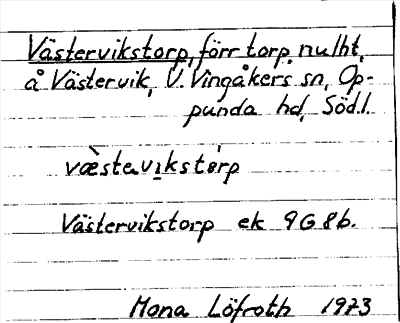 Västervikstorp, förr torp, nu lht,
å Västervik, V. Vingåkers sn, Op-
punda hd, Södl.
væ̀stavɩkstόrp
Västervikstorp ek 9G 8b.
Mona Löfroth 1973